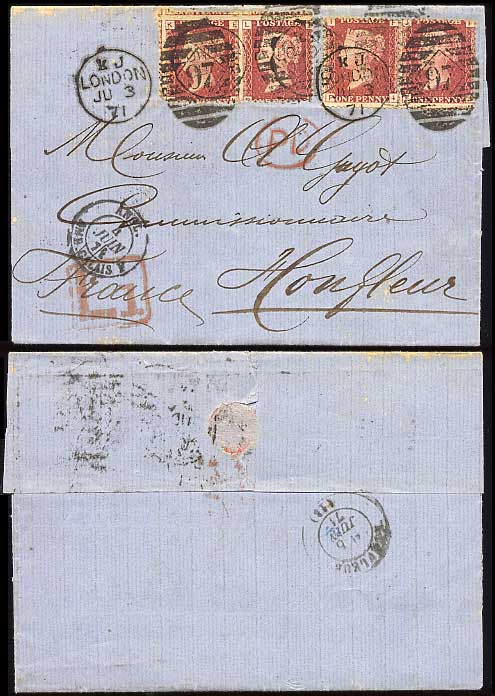 POSTAGE POSTAGE POSTAGE
ONE PENNY
K J
LONDON
JU 3
71
97
K J
LONDON
JU 3
71
97
PD
Monsieur A Guyot
Commissionnaire
JUIN
CALAIS
France Honfleur
HONFLEUR
6
JUIN
71